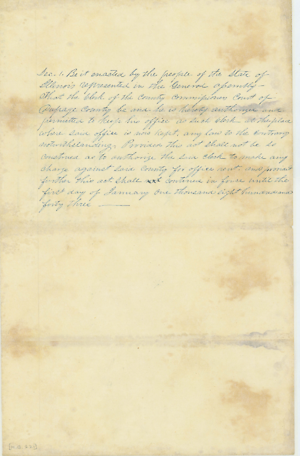 Sec. 1. Be it enacted by the people of the State of
Illinois represented in the General Assembly
That the Clerk of the County Commissioners Court of
County be and he is hereby authorized and
permitted to keep his office as such Clerk at the place
where said office is now kept, any law to the contrary
notwithstanding. Provided this act shall not be so
construed as to authorize the said Clerk to make any
charge against said County for office rent. and provided
further this act shall continue in force until the
first day of January one thousand eight hundred and
forty three